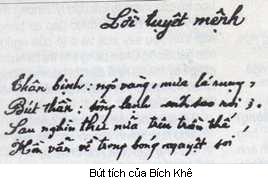 Lời tuyệt mệnh
Thân bịnh : ngô vàng, mưa lá rụng,
Bút thần : sông lạnh ánh sao rơi ;
Sau nghìn thu nữa trên trần thế,
Hồn vẫn về trong bóng nguyệt soi
Bút tích của Bích Khê